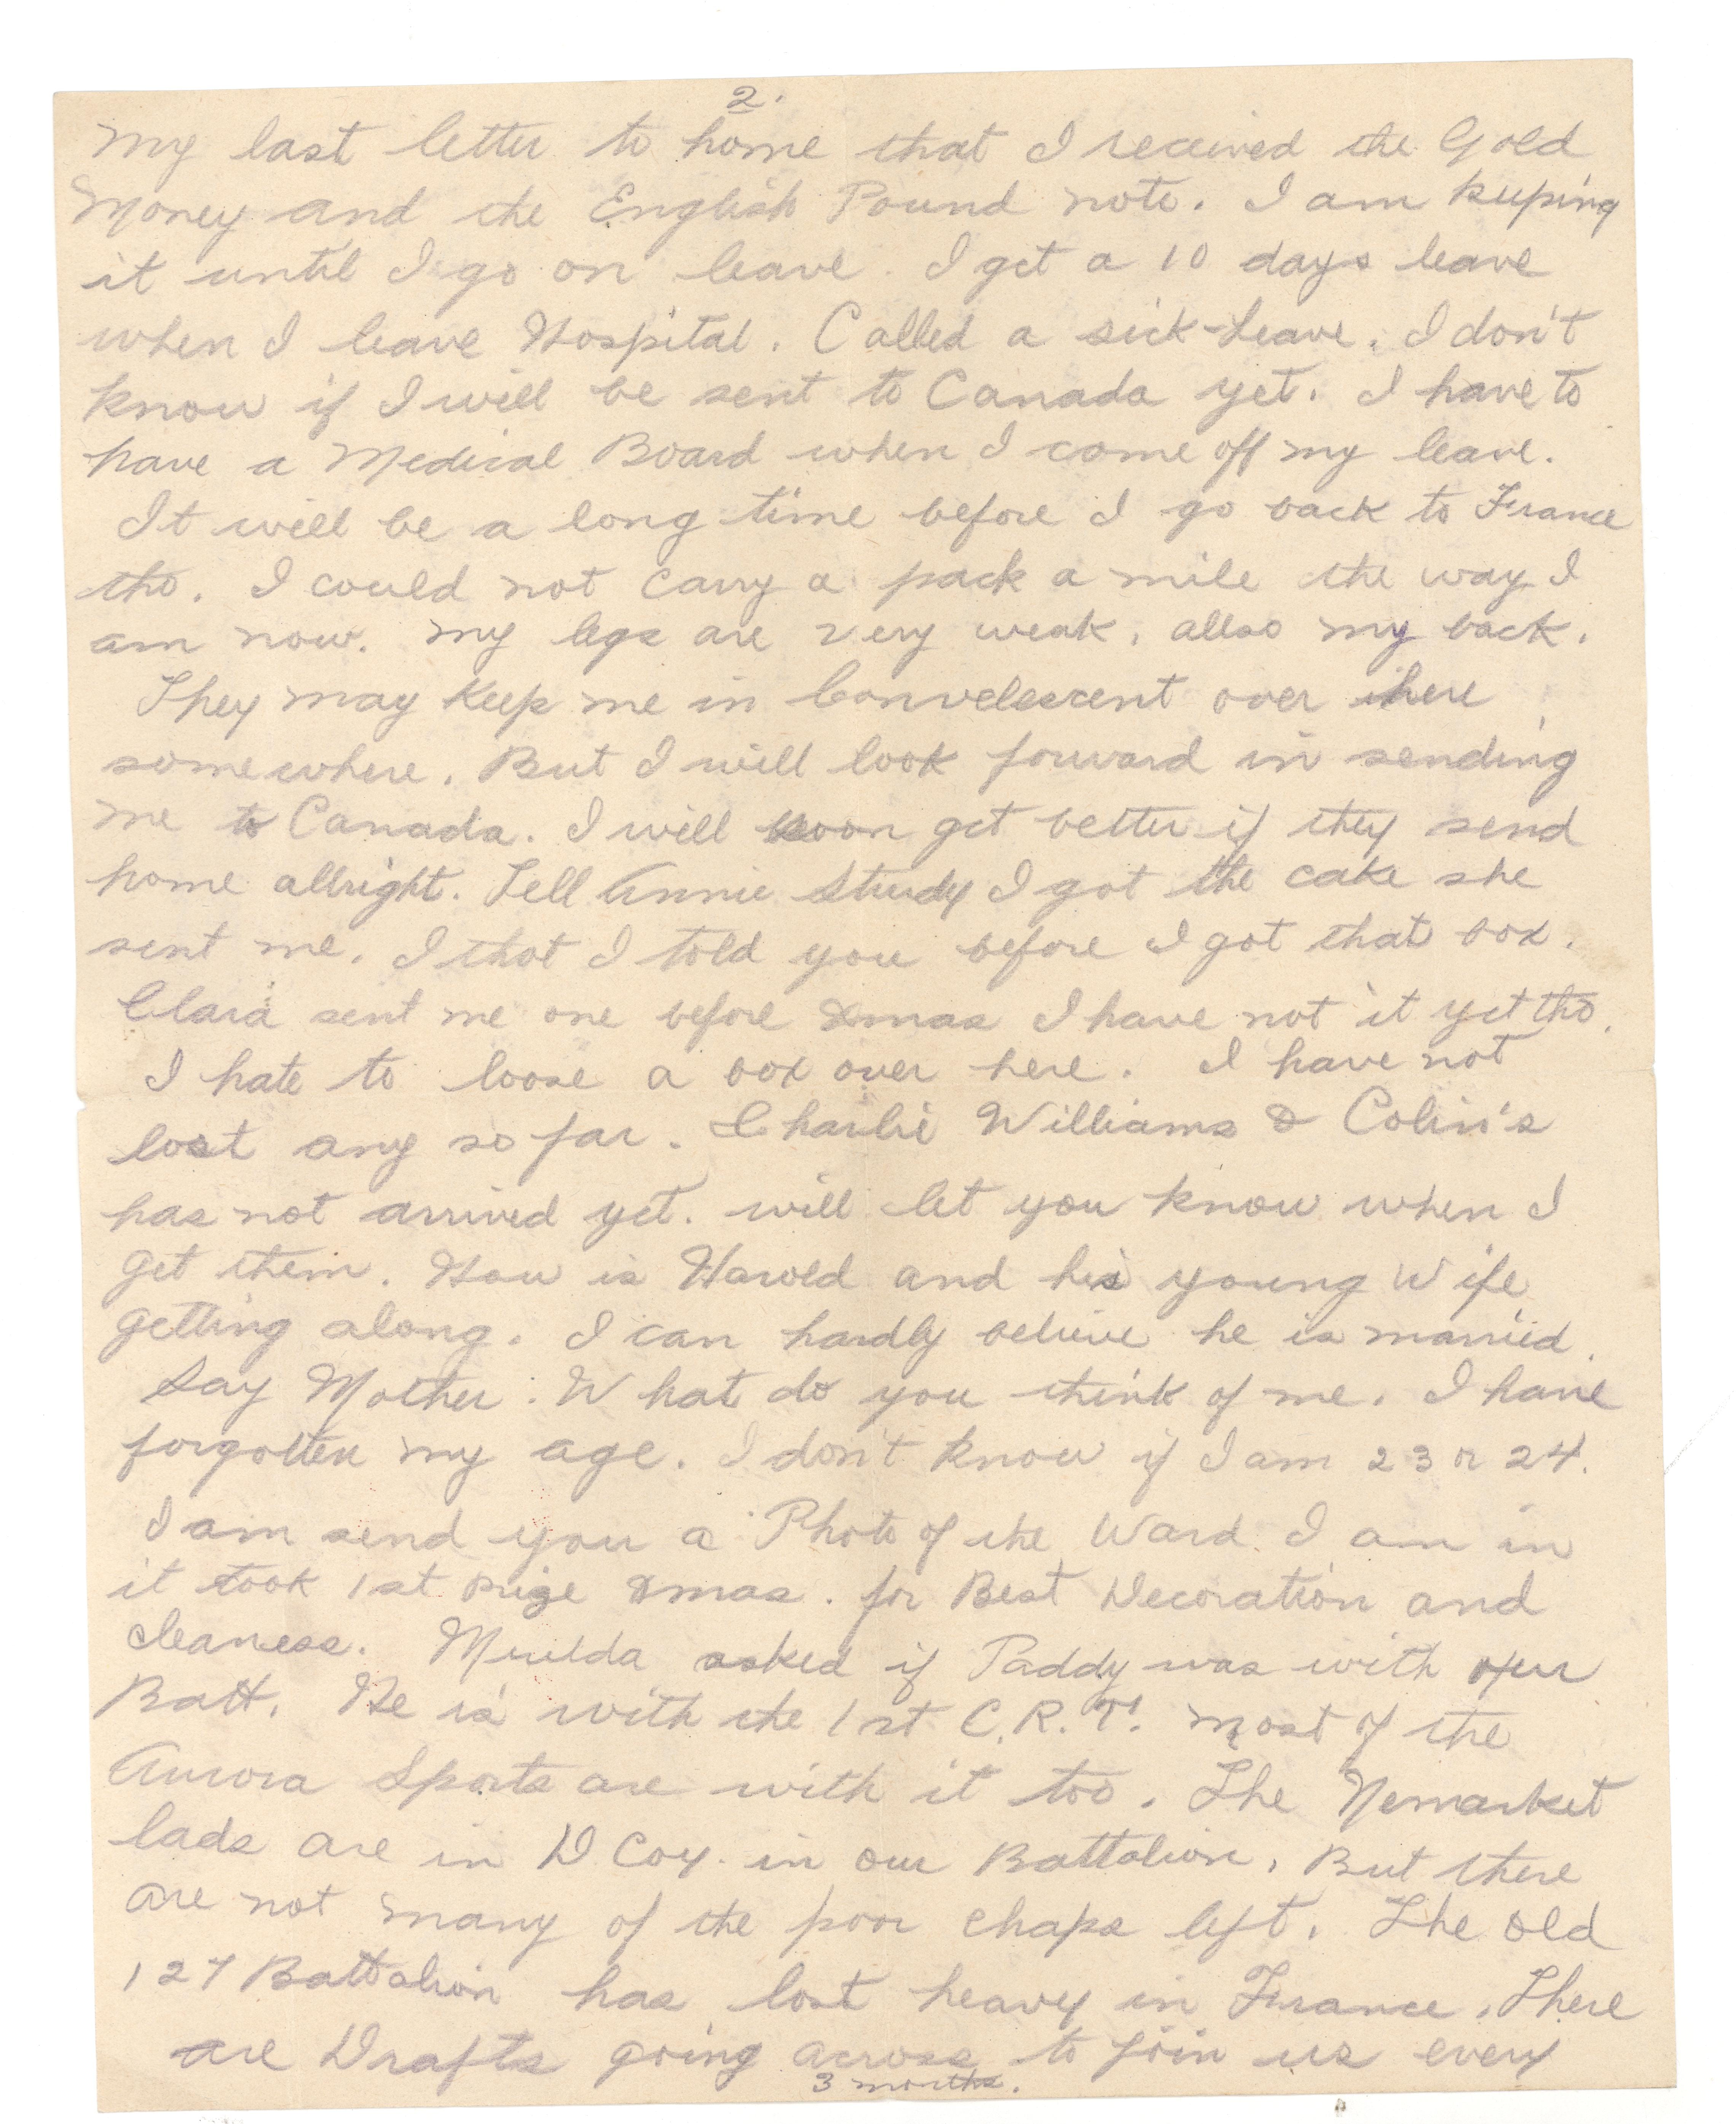 2.
My last letter to home that I received the Gold
Money and the English Pound note. I am keeping
it until I go on leave. I get a 10 days leave
when I leave Hospital. Called a sick-Leave. I don't
know if I will be sent to Canada yet. I have to
have a Medical Board when I come off my leave.
It will be a long time before I go back to France
tho. I could not carry a pack a mile the way I
am now. My legs are very weak, allso my back.
They may keep me in Convelescent over here
somewhere. But I will look forward in sending
me to Canada. I will soon get better if they send
home allright. Tell Annie Study I got the cake she
sent me. I thot I told you before I got that box.
Clara sent me one before Xmas I have not it yet tho.
I hate to loose a box over here. I have not
lost any so far. Charlie Williams & Colin's
has not arrived yet. will let you know when I
get them. How is Harold and his young Wife
getting along. I can hardly believe he is married.
Say Mother: What do you think of me. I have
forgotten my age. I don't know if I am 23 or 24.
I am send you a Photo of the Ward I am in
it took 1st prize Xmas. for Best Decoration and
cleaness. asked if Paddy was with our
Batt. He is with the 1st C.R.T. most of the
Aurora Sports are with it too. The Nemarket
lads are in D Coy. in our Battalion, But there
are not many of the poor chaps left. The old
127 Battalion has lost heavy in France. There
are Drafts going across to join us every
3 months.